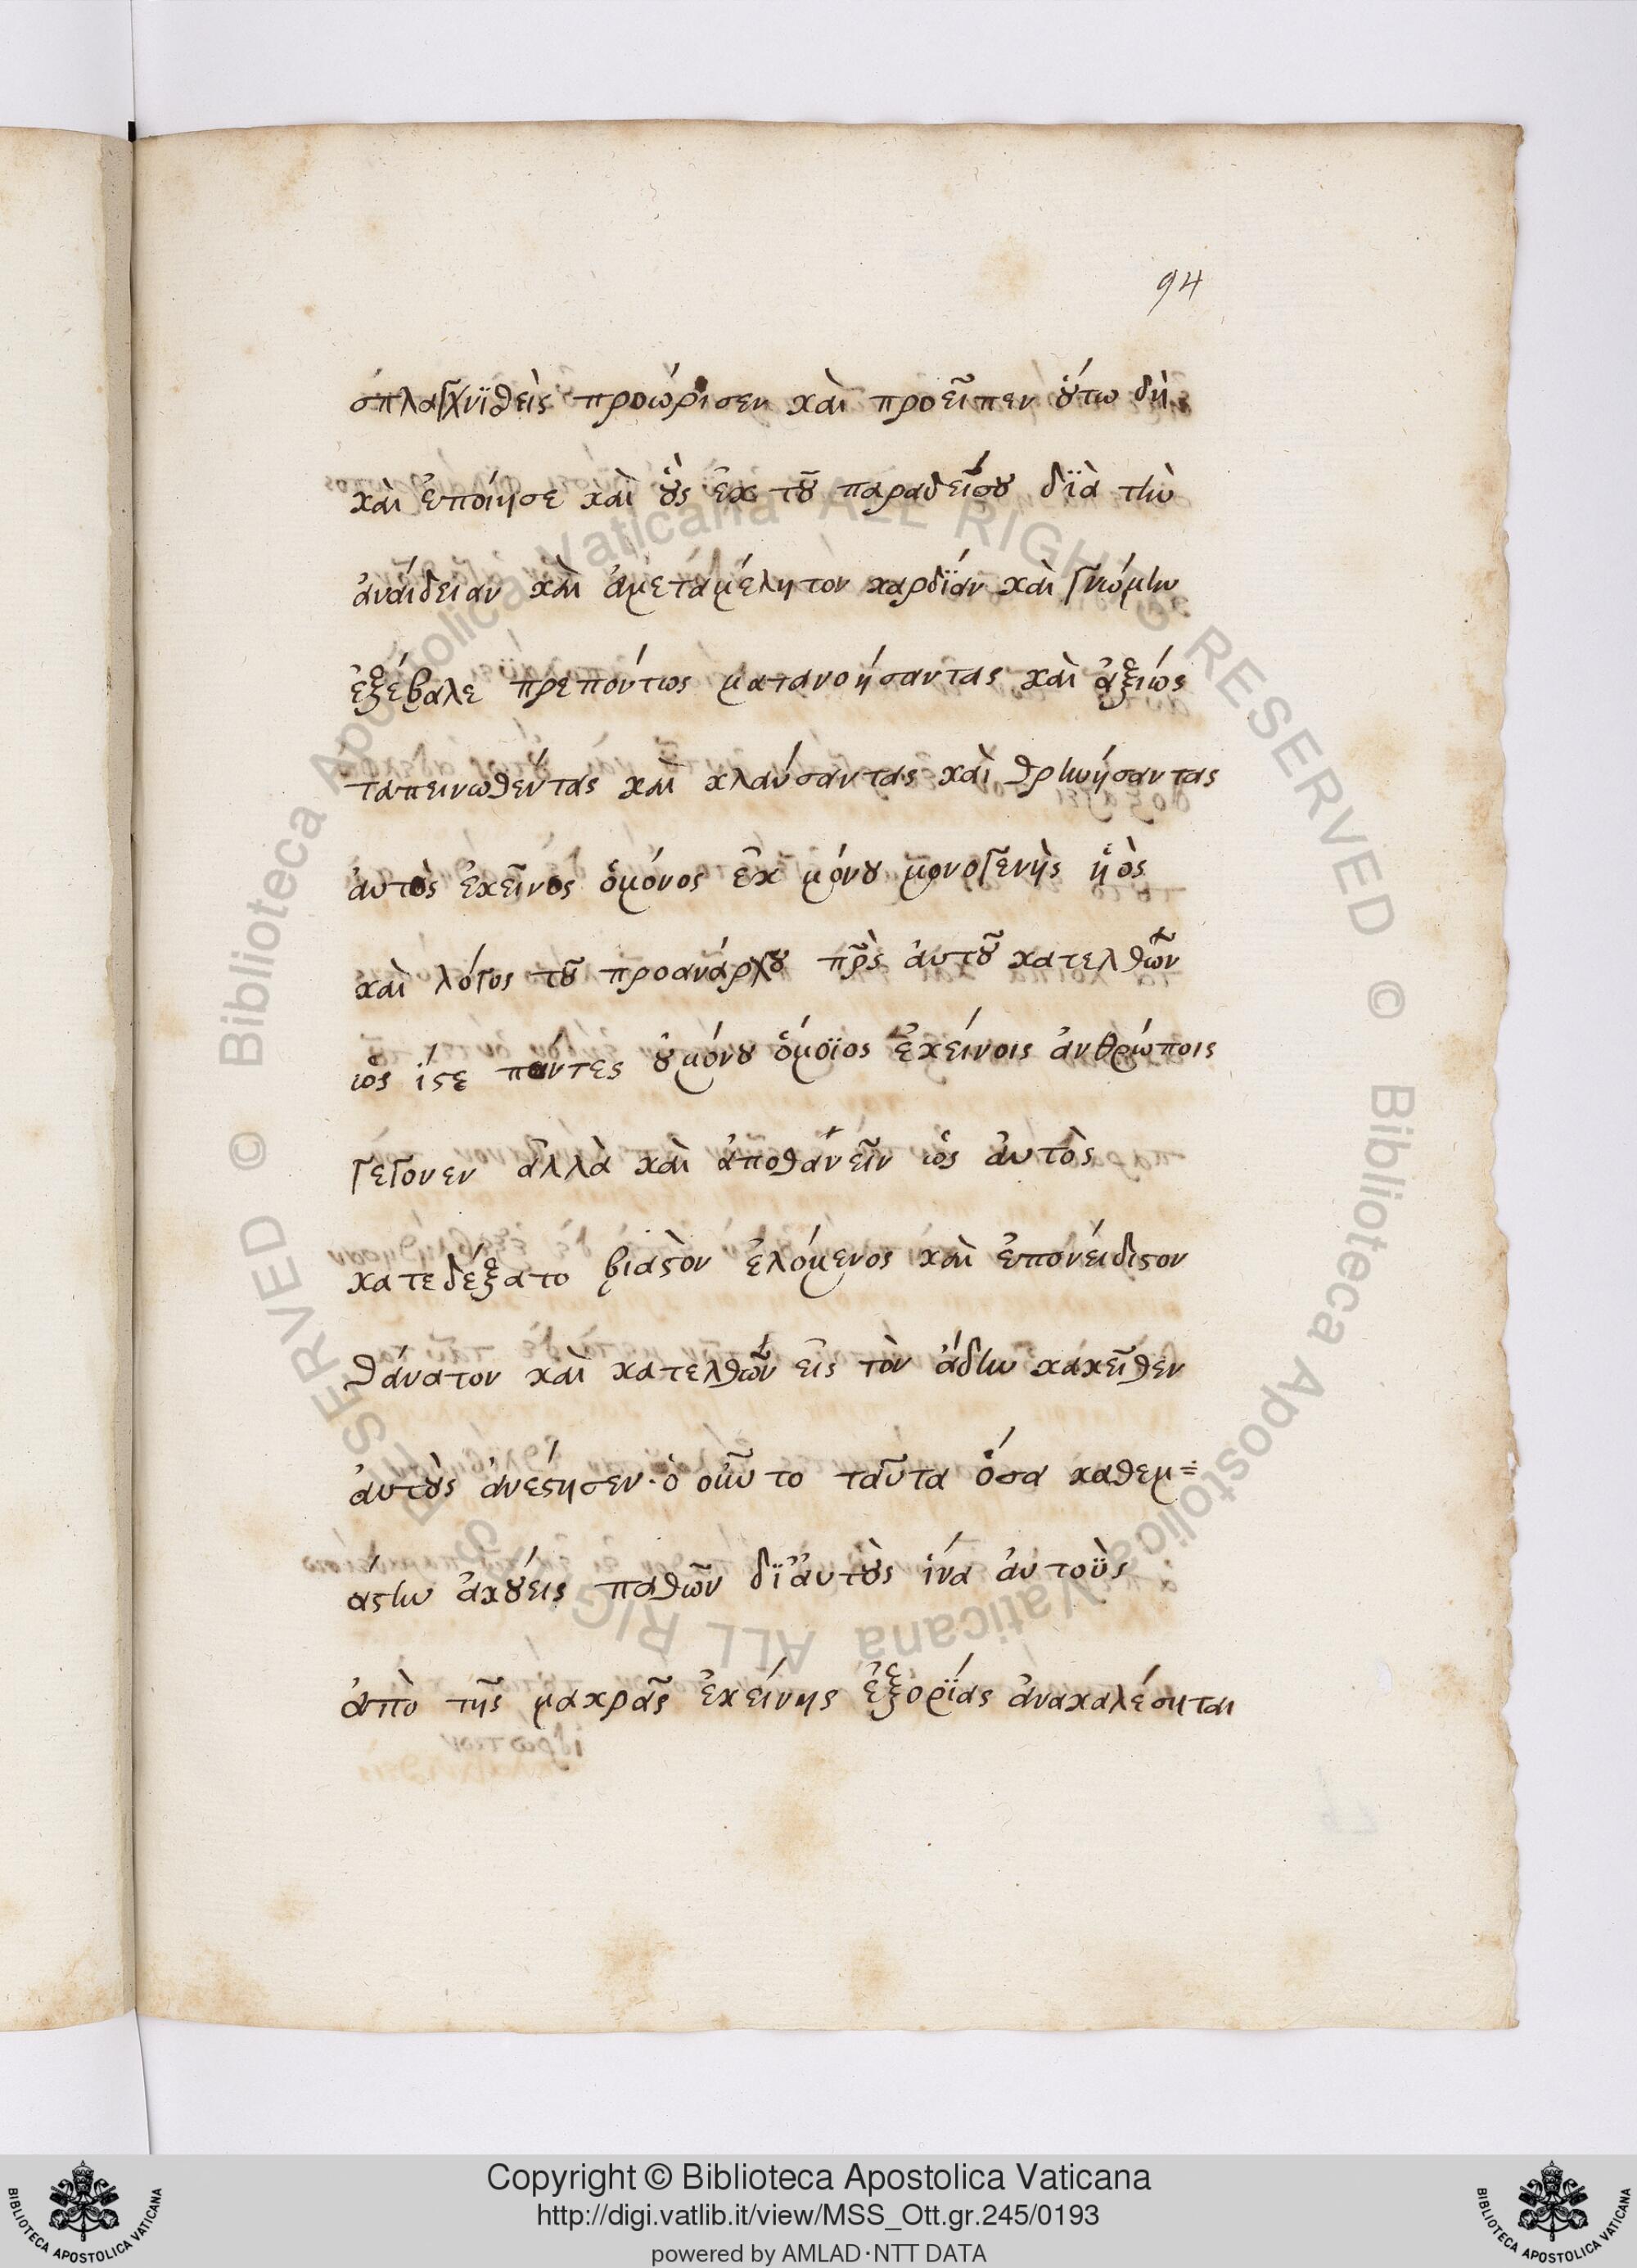 94
σπλαγχνϊθεὶς προώρισεν καὶ προεῖπεν οὕτω δὴ
καὶ ἐποίησε καὶ οὓς ἐκ τοῦ παραδείσου δϊὰ τὴν
ἀναίδειαν καὶ ἀμεταμέλητον καρδϊάν καὶ γνώμην
ἐξέβαλε πρεπόντως ματανοήσαντας καὶ ἀξιώς
ταπεινωθέντας καὶ κλαύσαντας καὶ θρηνήσαντας
ἀυτὸς ἐκεῖνος ὁμόνος ἐκ μόνου μονογενὴς ἡὸς
καὶ λόγος τοῦ προανάρχου πρ̅ς ἀυτοῦ κατελθῶν
ὡς ἴστε πάντες ουμόνου ὅμοϊος ἐκείνοις ἀνθρώποις
γεγονεν ἀλλὰ καὶ ἀποθανεῖν ὡς ἀυτὸς
κατεδέξατο βιαστὸν ἑλόμενος καὶ ἐπονείδιστον
θάνατον καὶ κατελθῶν εἰς τὸν ἅδην κακεῖθεν
ἀυτοὺς ἀνέστησεν· ὁ οὖν το ταῦτα ὅσα καθεμ=
άστην ἀκούεις παθῶν δϊ ἀυτοὺς ἵνα ἀυτοῢς
ἀπὸ τῆς μακρᾶς ἐκείνης ἐξορϊάς ἀνακαλέσηται
Copyright © Biblioteca Apostolica Vaticana
http://digi.vatlib.it/view/MSS_Ott.gr.245/0193
powered by AMLAD·NTT DATA
BIBLIOTECA APOSTOLICA VATICANA
BIBLIOTECA APOSTOLICA VATICANA
© Biblioteca Apostolica Vaticana ALL RIGHTS RESERVED © Biblioteca Apostolica Vaticana ALL RIGHTS RESERVED